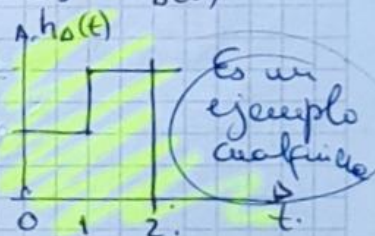 h_Δ(t)
Es un
ejemplo
cualquiera
t.
0 1 2.